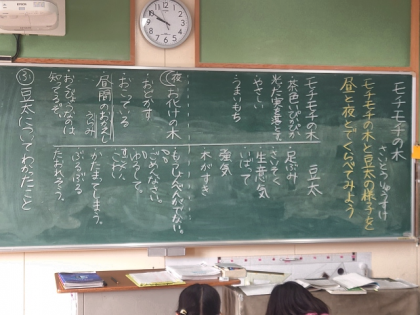 モチモチの木
さいとうりゅうすけ
モチモチの木と豆太の様子を
昼と夜とでくらべてみよう
モチモチの木
・茶色いぴかぴか
光った実を落とす
・やさしい
・うまいもち
豆太
・足ぶみ
・さいそく
生意気
いばって
強気
木がすき
夜 お化けの木
・おどかす
・おこっている
昼間のおかえし
うらみ
おくびょうなのは
知ってるぞ。
・もうしょんべんがでない。
ごめんなさい。
ゆるして。
こわい
かたまってしまう。
ぶるぶる
たおれそう。
③豆太についてわかったこと